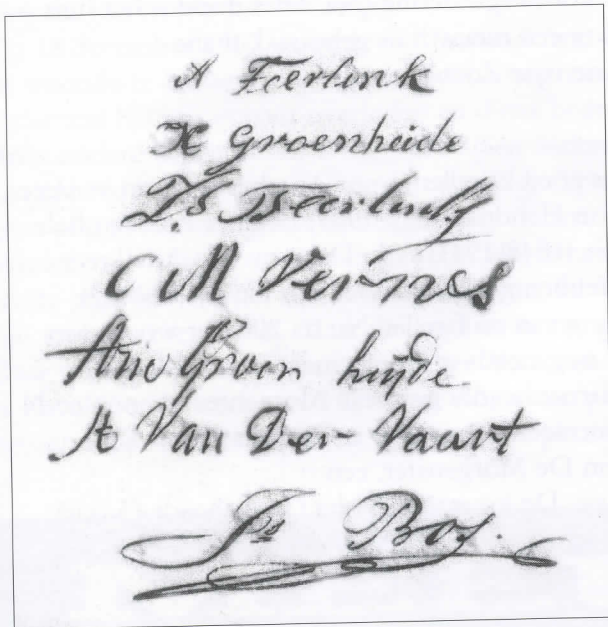 A Teerlink
H Groenheide
T. S. Teerlink
C M Vernes
Arie Groen heijde
A Van Der Vaart
Js Bos.